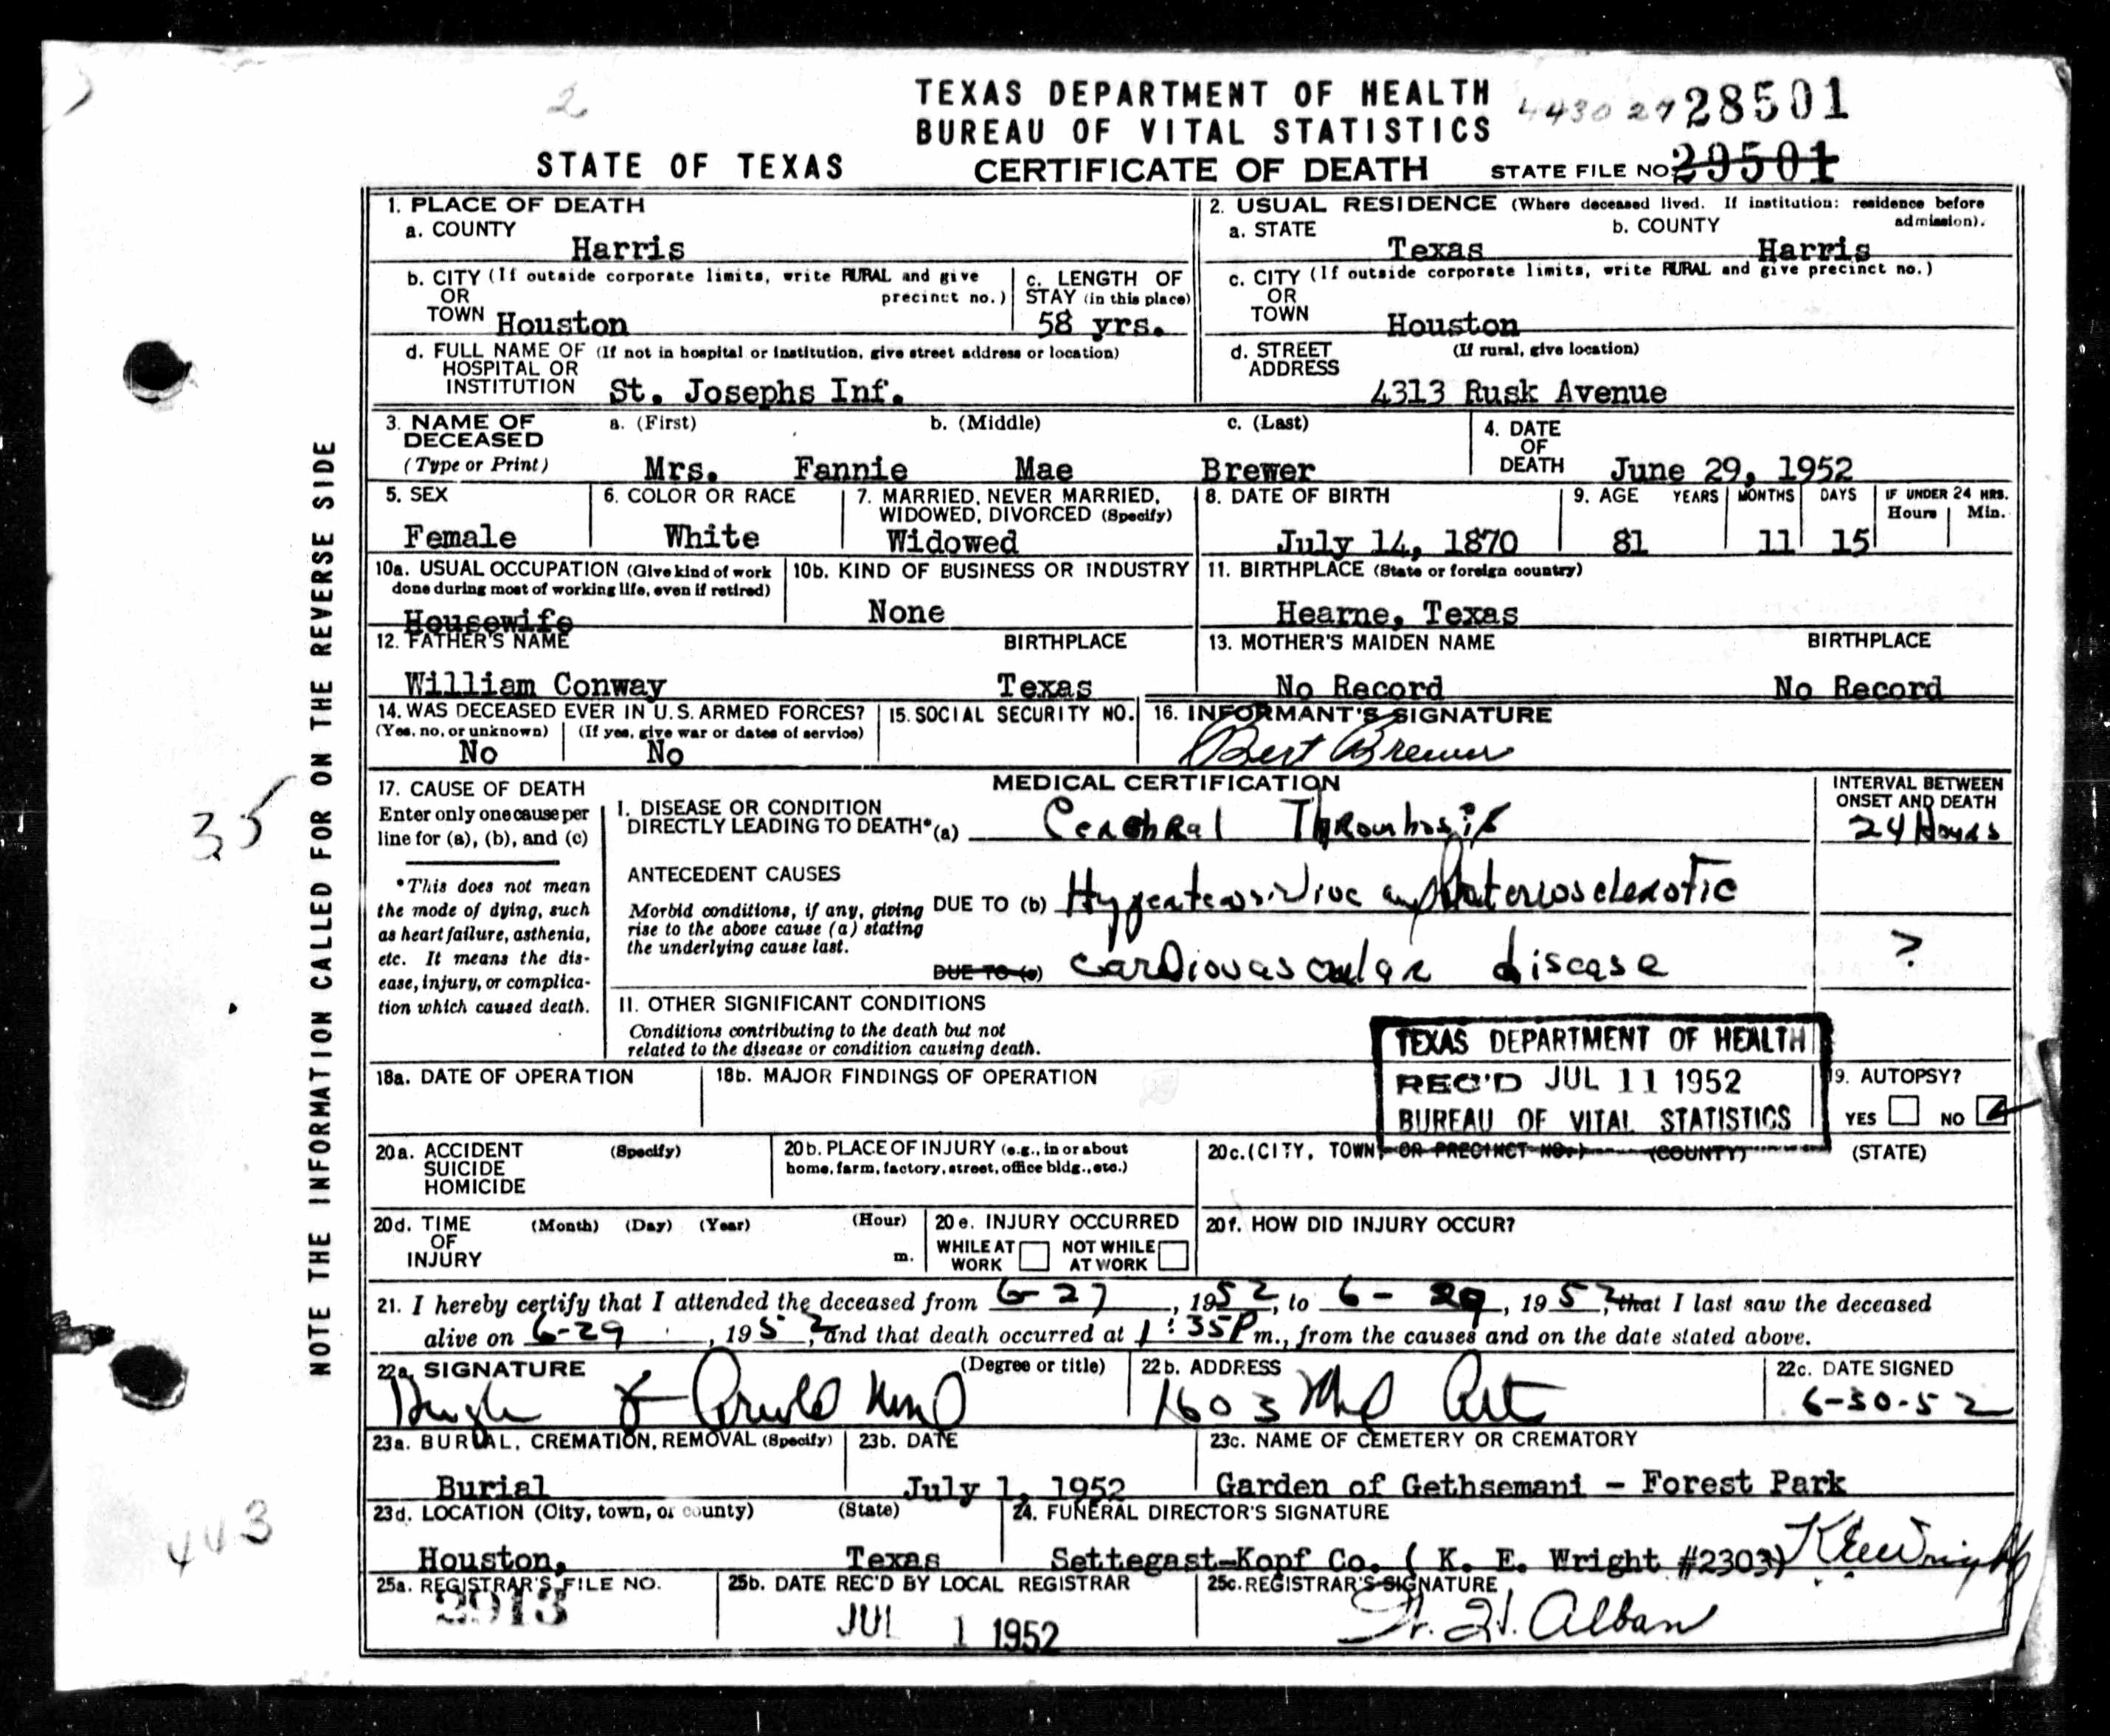 2
TEXAS DEPARTMENT OF HEALTH
BUREAU OF VITAL STATISTICS
443027 28501
STATE OF TEXAS CERTIFICATE OF DEATH STATE FILE NO. 29501
NOTE THE INFORMATION CALLED FOR ON THE REVERSE SIDE
1. PLACE OF DEATH
a. COUNTY
Harris
2. USUAL RESIDENCE (Where deceased lived. If institution: residence before admission).
a. STATE b. COUNTY
Texas Harris
b. CITY (If outside corporate limits, write RURAL and give
OR precinct no.)
TOWN Houston
c. LENGTH OF
STAY (in this place)
58 yrs.
c. CITY (If outside corporate limits, write RURAL and give precinct no.)
OR
TOWN Houston
d. FULL NAME OF (If not in hospital or institution, give street address or location)
HOSPITAL OR
INSTITUTION St. Josephs Inf.
d. STREET (If rural, give location)
ADDRESS
4313 Rusk Avenue
3. NAME OF a. (First) b. (Middle) c. (Last)
DECEASED
(Type or Print) Mrs. Fannie Mae Brewer
4. DATE
OF
DEATH June 29, 1952
5. SEX
Female
6. COLOR OR RACE
White
7. MARRIED, NEVER MARRIED,
WIDOWED, DIVORCED (Specify)
Widowed
8. DATE OF BIRTH
July 14, 1870
9. AGE YEARS MONTHS DAYS IF UNDER 24 HRS.
Hours Min.
81 11 15
10a. USUAL OCCUPATION (Give kind of work
done during most of working life, even if retired)
Housewife
10b. KIND OF BUSINESS OR INDUSTRY
None
11. BIRTHPLACE (State or foreign country)
Hearne, Texas
12. FATHER'S NAME BIRTHPLACE
William Conway Texas
13. MOTHER'S MAIDEN NAME BIRTHPLACE
No Record No Record
14. WAS DECEASED EVER IN U.S. ARMED FORCES?
(Yes, no, or unknown) (If yes, give war or dates of service)
No No
15. SOCIAL SECURITY NO.
16. INFORMANT'S SIGNATURE
Bert Brewer
35
17. CAUSE OF DEATH
Enter only one cause per
line for (a), (b), and (c)
*This does not mean
the mode of dying, such
as heart failure, asthenia,
etc. It means the dis-
ease, injury, or complica-
tion which caused death.
MEDICAL CERTIFICATION
INTERVAL BETWEEN
ONSET AND DEATH
I. DISEASE OR CONDITION
DIRECTLY LEADING TO DEATH* (a) Cerebral Thrombosis 24 Hours
ANTECEDENT CAUSES
Morbid conditions, if any, giving
rise to the above cause (a) stating
the underlying cause last.
DUE TO (b) Hypertensive and Arteriosclerotic
DUE TO (c) cardiovascular disease ?
II. OTHER SIGNIFICANT CONDITIONS
Conditions contributing to the death but not
related to the disease or condition causing death.
TEXAS DEPARTMENT OF HEALTH
REC'D JUL 11 1952
BUREAU OF VITAL STATISTICS
18a. DATE OF OPERATION
18b. MAJOR FINDINGS OF OPERATION
19. AUTOPSY?
YES NO
20a. ACCIDENT (Specify)
SUICIDE
HOMICIDE
20b. PLACE OF INJURY (e.g., in or about
home, farm, factory, street, office bldg., etc.)
20c. (CITY, TOWN, OR PRECINCT NO.) (COUNTY) (STATE)
20d. TIME (Month) (Day) (Year) (Hour)
OF
INJURY m.
20e. INJURY OCCURRED
WHILE AT WORK NOT WHILE AT WORK
20f. HOW DID INJURY OCCUR?
21. I hereby certify that I attended the deceased from 6-27, 1952, to 6-29, 1952, that I last saw the deceased
alive on 6-29, 1952, and that death occurred at 1:35P m., from the causes and on the date stated above.
22a. SIGNATURE (Degree or title)
Hugh
22b. ADDRESS
1603 Med Arts
22c. DATE SIGNED
6-30-52
23a. BURIAL, CREMATION, REMOVAL (Specify)
Burial
23b. DATE
July 1, 1952
23c. NAME OF CEMETERY OR CREMATORY
Garden of Gethsemani - Forest Park
443
23d. LOCATION (City, town, or county) (State)
Houston, Texas
24. FUNERAL DIRECTOR'S SIGNATURE
Settegast-Kopf Co. ( K. E. Wright #2303) K E Wright
25a. REGISTRAR'S FILE NO.
2913
25b. DATE REC'D BY LOCAL REGISTRAR
JUL 1 1952
25c. REGISTRAR'S SIGNATURE
Alban